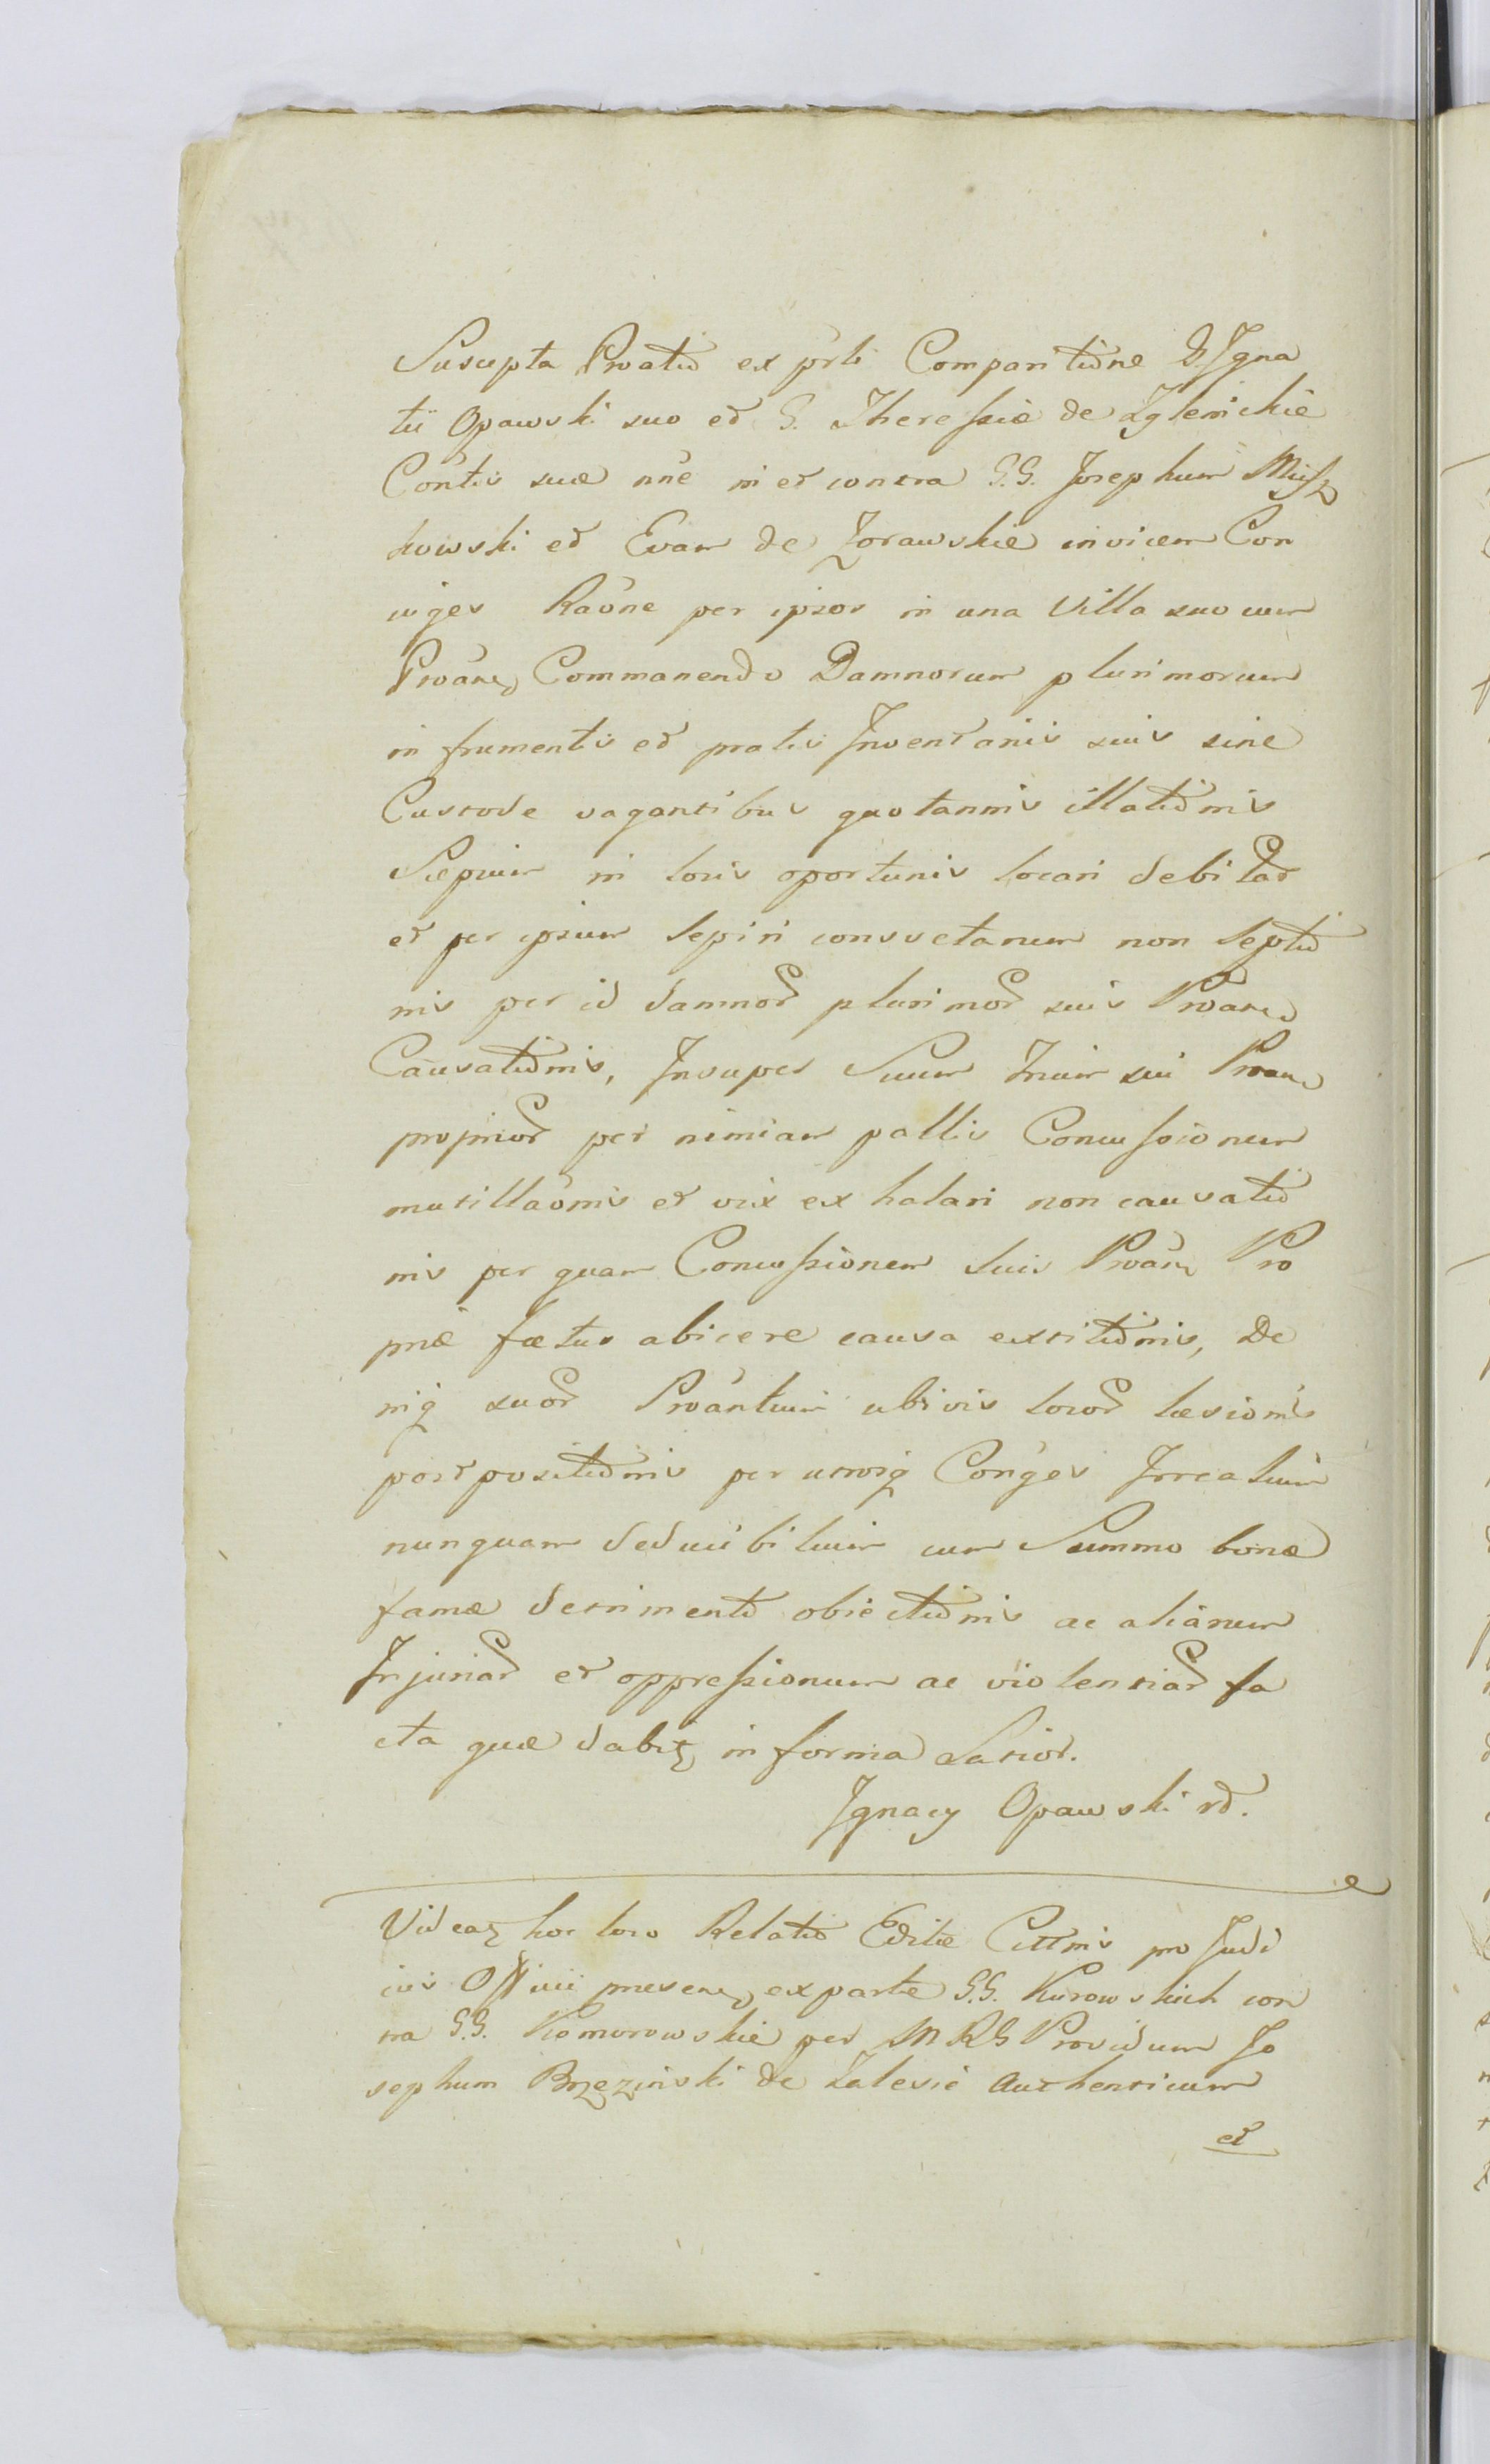 Suscepta Proatio ex prti Comparitione G. Igna
tii Opawski suo et G. Theressiæ de Zglenickie
Contis suæ nne in et contra G.G. Josephum Misz
kowski et Evam de Zorawskie invicem Con
iuges Raône per ipsos in una Villa suo cum
Proane Commanendo Damnorum plurimorum
in frumentis et pratis Inventariis suis sine
Custode vagantibus quotannis illationis
Sæpium in locis oportunis locari debitar
et per ipsum sepiri consvetarum non septio
nis per id damnor plurimor suis Proane
Causationis, Insuper Suum Trium sui Proane
proprior per nimiam pallis Concussionem
mutillaônis et vix exhalari non causatio
nis per quam Concussionem Suis Proane Pro
priæ fœtus abicere causa extitionis, De
niq suor Proantium ubivis locor læsionis
postpositionis per utrosq Conges Irreatum
nunquam deducibilium cum Summo bonæ
famæ detrimento obiectionis ac aliarum
Injuriar et oppressionum ac violentiar fa
cta quæ dabit in forma Latior.
Ignacy Opawski
Videat hoc loco Relatio Editæ Cittnis pro Judi
ciis Officii presene ex parte G.G. Kurowskich con
tra G.G. Komorowskie per MRG Providum Jo
sephum Brzezinski de Zalesie Authenticum
et